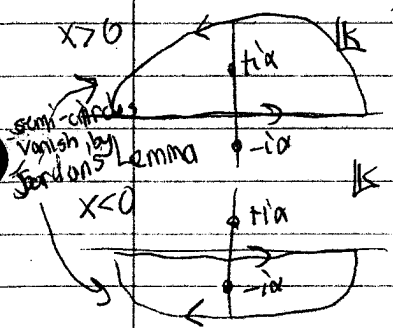 x>0
K
+iα
semi-circles
vanish by
Jordan's Lemma
-iα
K
x<0
+iα
-iα